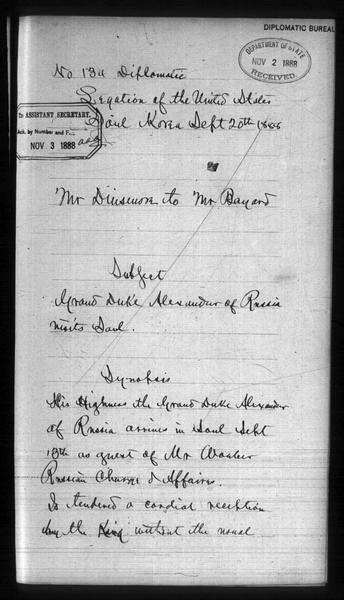 DIPLOMATIC BUREAU
DEPARTMENT OF STATE
NOV 2 1888
RECEIVED.
No 134 Diplomatic
Legation of the United States
Söul Korea Sept 20th 1888
To ASSISTANT SECRETARY,
Ack. by Number and
NOV 3 1888
Mr Dinsmore to Mr Bayard
Subject
Grand Duke Alexander of Russia
visits Söul.
Synopsis
His Highness the Grand Duke Alexander
of Russia arrives in Söul Sept
13th as guest of Mr Waeber
Russian Chargé d Affaires.
Is tendered a cordial reception
by the King without the usual